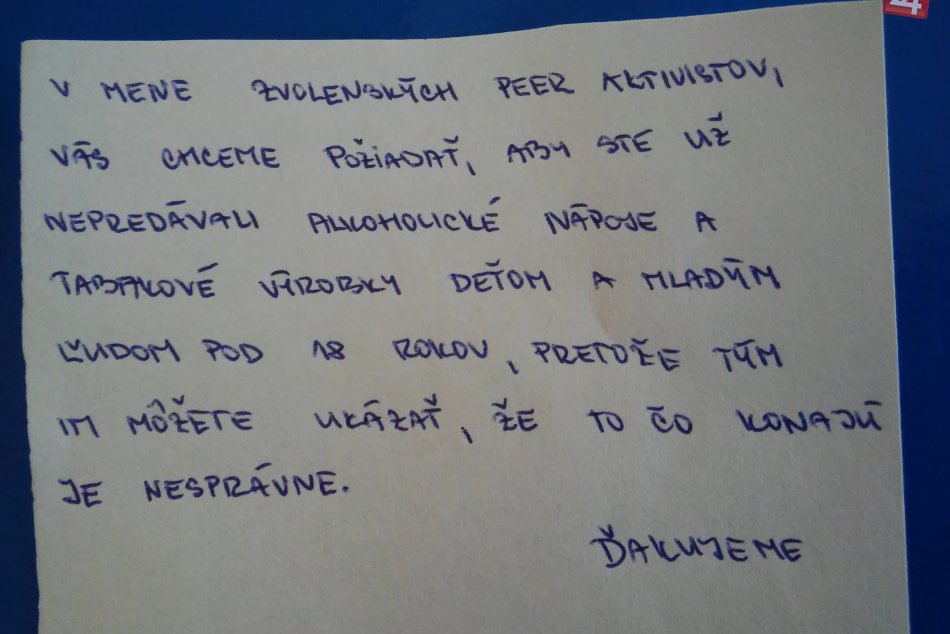 V MENE ZVOLENSKÝCH PEER AKTIVISTOV,
VÁS CHCEME POŽIADAŤ, ABY STE UŽ
NEPREDÁVALI ALKOHOLICKÉ NÁPOJE A
TABAKOVÉ VÝROBKY DEŤOM A MLADÝM
ĽUDOM POD 18 ROKOV, PRETOŽE TÝM
IM MÔŽETE UKÁZAŤ, ŽE TO ČO KONAJÚ
JE NESPRÁVNE.
ĎAKUJEME